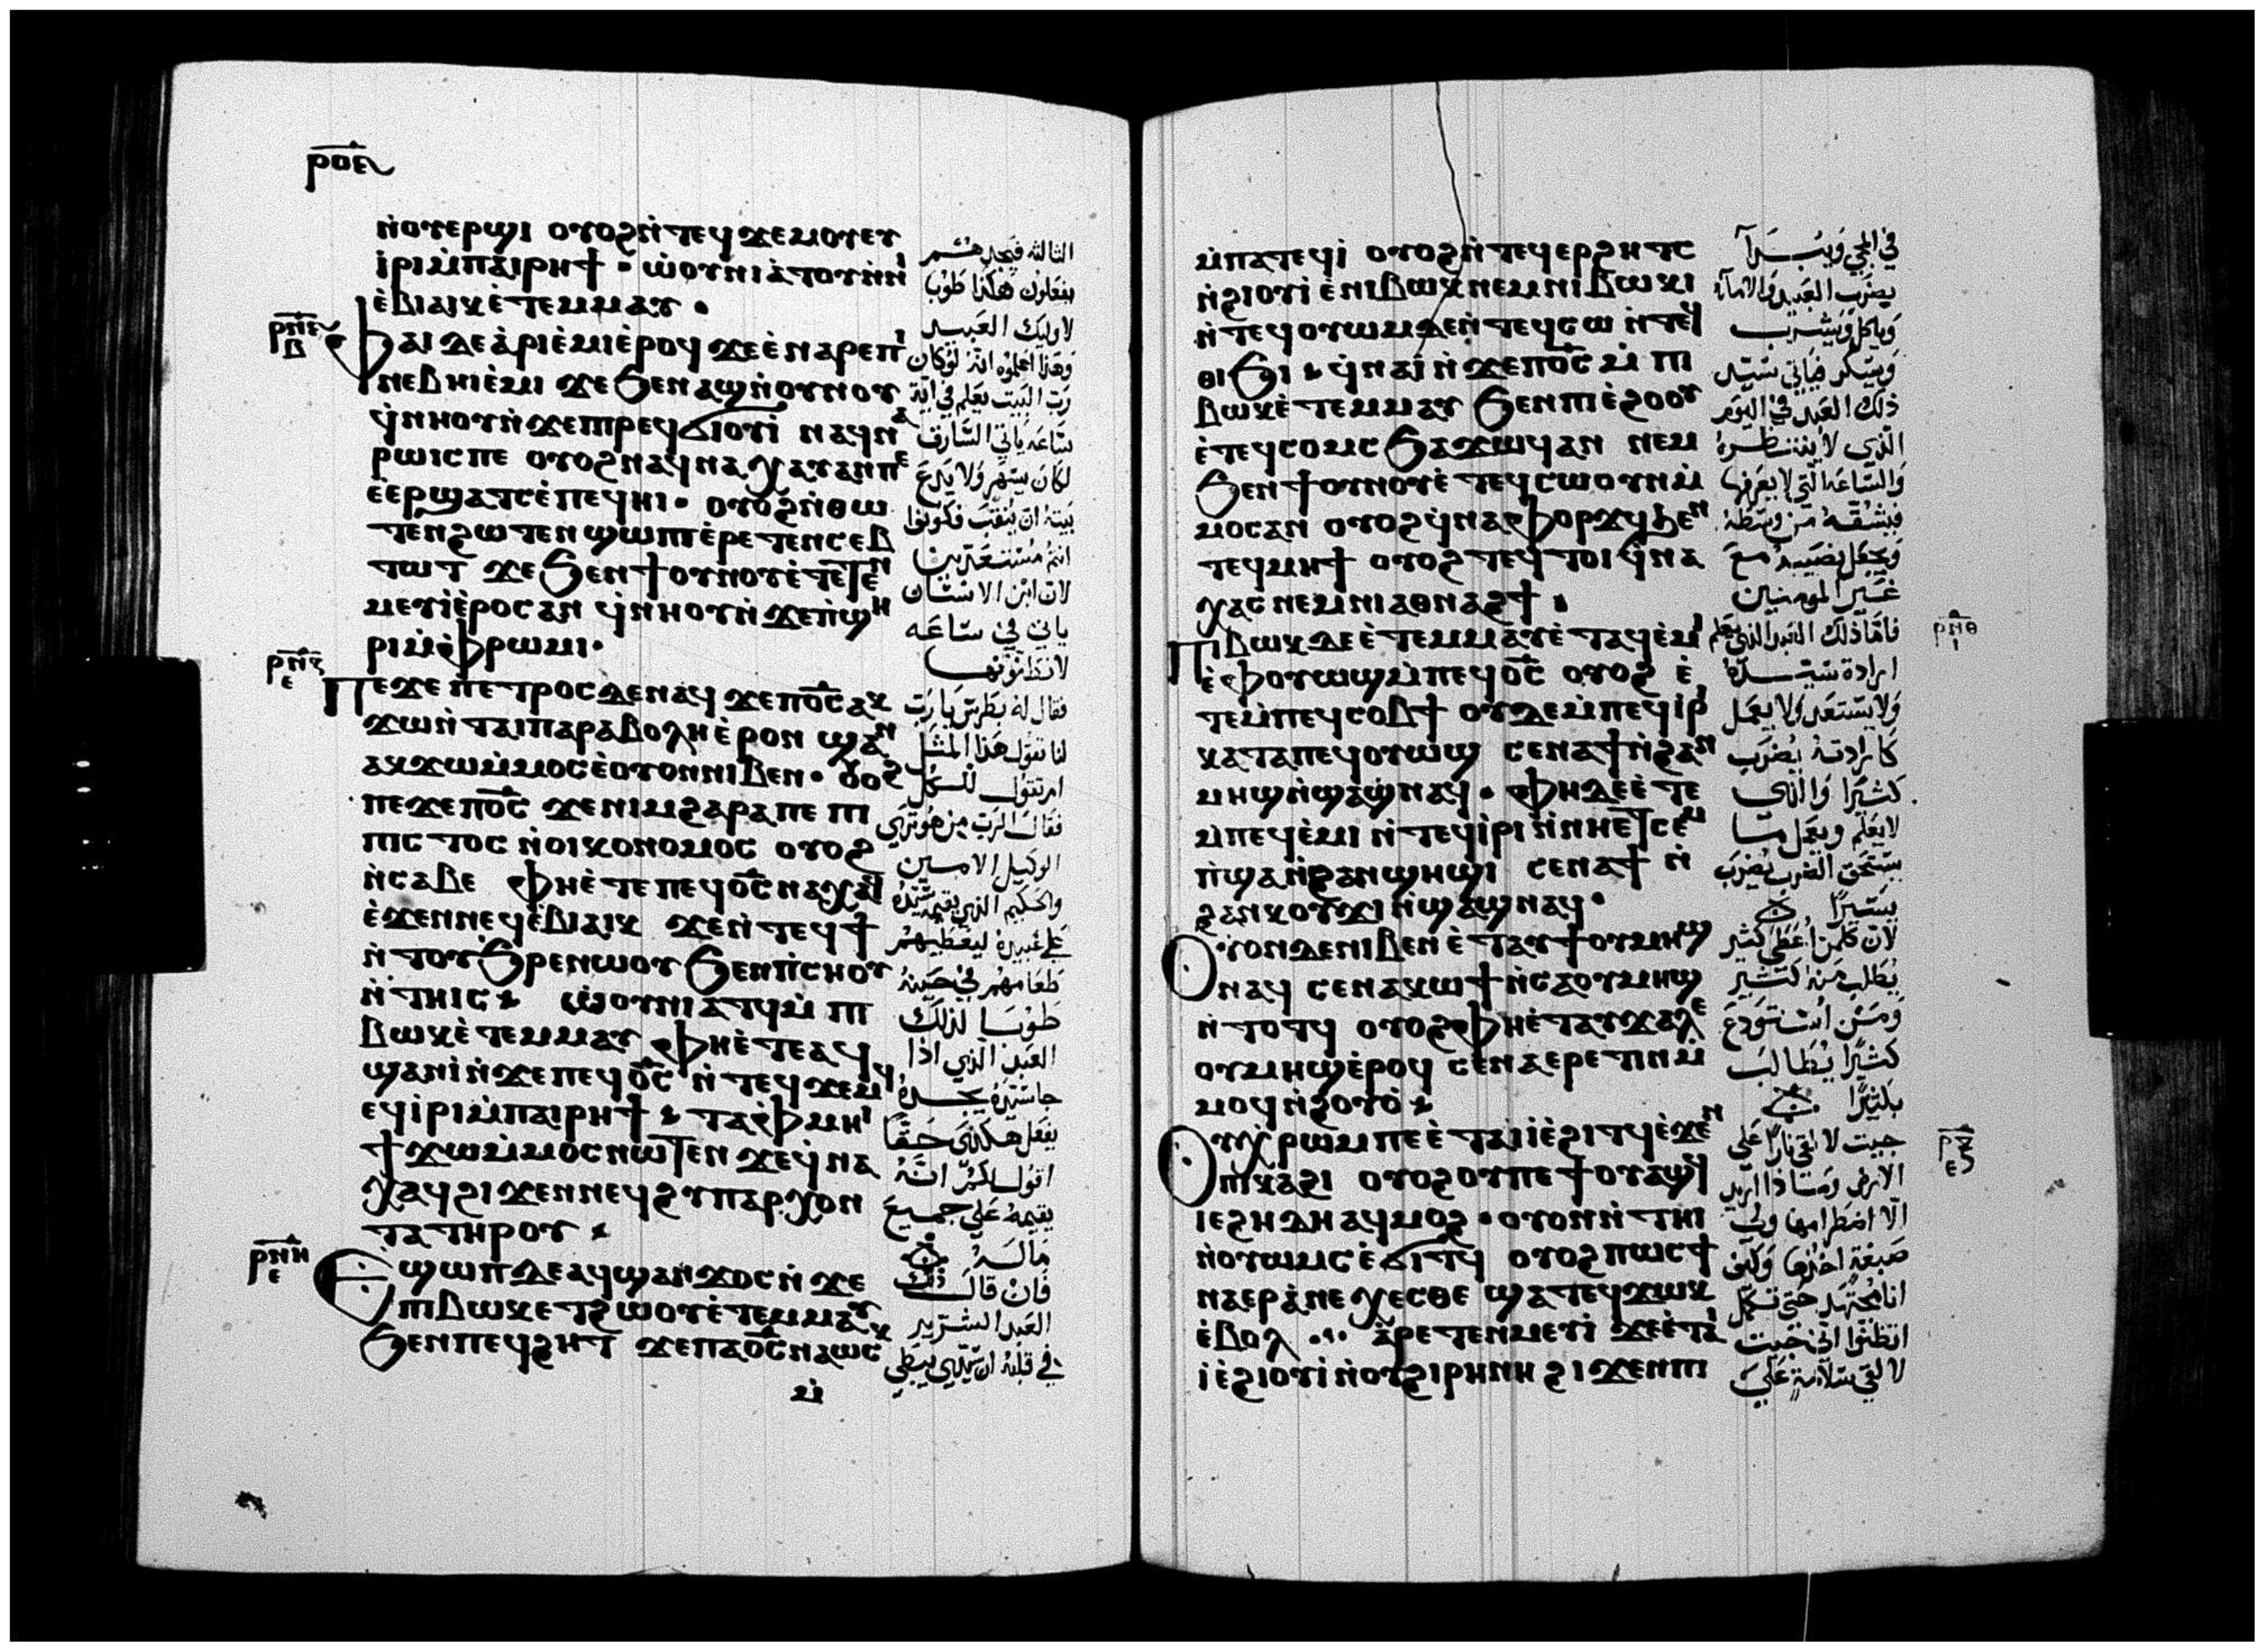 ⲣⲟⲉ
ⲛ̀ⲟⲩⲉⲣϣⲓ ⲟⲩⲟϩ ⲛ̀ⲧⲉϥϫⲉⲙⲟⲩⲉⲩ
ⲓ̀ⲣⲓ ⲙ̀ⲡⲁⲓⲣⲏϯ · ⲱ̀ⲟⲩⲛⲓⲁ̀ⲧⲟⲩ ⲛ̀ⲛⲓ
ⲉ̀ⲃⲓⲁⲓⲕ ⲉ̀ⲧⲉⲙⲙⲁⲩ ·
ⲣⲛⲉ
ⲃ
ⲫⲁⲓ ⲇⲉ ⲁ̀ⲣⲓⲉ̀ⲙⲓ ⲉ̀ⲣⲟϥ ϫⲉ ⲉ̀ⲛⲁⲣⲉ ⲡⲓ
ⲛⲉⲃⲏⲓ ⲉ̀ⲙⲓ ϫⲉ ϧⲉⲛ ⲁϣ ⲛ̀ⲟⲩⲛⲟⲩ
ϥ̀ⲛⲏⲟⲩ ⲛ̀ϫⲉ ⲡⲓⲣⲉϥϭⲓⲟⲩⲓ̀ ⲛⲁϥⲛⲁ
ⲣⲱⲓⲥ ⲡⲉ ⲟⲩⲟϩ ⲛⲁϥⲛⲁⲭⲁⲩ ⲁⲛ ⲡⲉ
ⲉ̀ⲉⲣϣⲁⲧⲥ ⲉ̀ⲡⲉϥⲏⲓ · ⲟⲩⲟϩ ⲛ̀ⲑⲱ
ⲧⲉⲛ ϩⲱⲧⲉⲛ ϣⲱⲡⲓ ⲉ̀ⲣⲉⲧⲉⲛⲥⲉⲃ
ⲧⲱⲧ ϫⲉ ϧⲉⲛ ϯⲟⲩⲛⲟⲩ ⲉ̀ⲧⲉⲧⲉⲛ
ⲙⲉⲩⲓ̀ ⲉ̀ⲣⲟⲥ ⲁⲛ ϥ̀ⲛⲏⲟⲩ ⲛ̀ϫⲉ ⲡ̀ϣⲏ
ⲣⲓ ⲙ̀ⲫ̀ⲣⲱⲙⲓ ·
ⲣⲛⲍ
ⲉ
ⲡⲉϫⲉ ⲡⲉⲧⲣⲟⲥ ⲇⲉ ⲛⲁϥ ϫⲉ ⲡⲟ̅ⲥ̅ ⲁⲕ
ϫⲱ ⲛ̀ⲧⲁⲓⲡⲁⲣⲁⲃⲟⲗⲏ ⲉ̀ⲣⲟⲛ ϣⲁⲛ
ⲁⲕϫⲱ ⲙ̀ⲙⲟⲥ ⲉ̀ⲟⲩⲟⲛ ⲛⲓⲃⲉⲛ · ⲟⲩⲟϩ
ⲡⲉϫⲉ ⲡⲟ̅ⲥ̅ ϫⲉ ⲛⲓⲙ ϩⲁⲣⲁ ⲡⲉ ⲡⲓ
ⲡⲓⲥⲧⲟⲥ ⲛ̀ⲟⲓⲕⲟⲛⲟⲙⲟⲥ ⲟⲩⲟϩ
ⲛ̀ⲥⲁⲃⲉ ⲫⲏ ⲉ̀ⲧⲉ ⲡⲉϥⲟ̅ⲥ̅ ⲛⲁⲭⲁϥ
ⲉ̀ϫⲉⲛ ⲛⲉϥⲉ̀ⲃⲓⲁⲓⲕ ϫⲉ ⲛ̀ⲧⲉϥϯ
ⲛ̀ⲧⲟⲩϧⲣⲉ ⲛⲱⲟⲩ ϧⲉⲛ ⲡ̀ⲥⲏⲟⲩ
ⲛ̀ⲧⲏⲓⲥ ⲱ̀ⲟⲩⲛⲓⲁⲧϥ ⲙ̀ⲡⲓ
ⲃⲱⲕ ⲉ̀ⲧⲉⲙⲙⲁⲩ ⲫⲏ ⲉ̀ⲧⲉ ⲁϥ
ϣⲁⲛⲓ̀ ⲛ̀ϫⲉ ⲡⲉϥⲟ̅ⲥ̅ ⲛ̀ⲧⲉϥϫⲉⲙϥ
ⲉϥⲓ̀ⲣⲓ ⲙ̀ⲡⲁⲓⲣⲏϯ ⲧⲁⲫ̀ⲙⲏⲓ
ϯϫⲱ ⲙ̀ⲙⲟⲥ ⲛⲱⲧⲉⲛ ϫⲉ ϥ̀ⲛⲁ
ⲭⲁϥ ϩⲓϫⲉⲛ ⲛⲉϥϩⲩⲡⲁⲣⲭⲟⲛ
ⲧⲁ ⲧⲏⲣⲟⲩ
ⲣⲛⲏ
ⲉ
ⲉϣⲱⲡ ⲇⲉ ⲁϥϣⲁⲛϫⲟⲥ ⲛ̀ϫⲉ
ⲡⲓⲃⲱⲕ ⲉⲧϩⲱⲟⲩ ⲉ̀ⲧⲉⲙⲙⲁⲩ
ϧⲉⲛ ⲡⲉϥϩⲏⲧ ϫⲉ ⲡⲁⲟ̅ⲥ̅ ⲛⲁⲱⲥⲕ
ⲙ̀
الثالثه فيجدهم
يفعلون هكذا طوبى
لاوليك العبيد
وهذا اعلموه انه لو كان
رب البيت يعلم في اية
ساعه ياتي السارق
لكان يسهر ولا يدع
بيته ان ينقب فكونوا
انتم مستعدين
لان ابن الانسان
ياتي في ساعه
لا تظنونها
فقال له بطرس يا رب
لنا تقول هذا المثل
ام تقول للكل
فقال الرب من هو ترى
الوكيل الامين
والحكيم الذي يقيمه سيده
على عبيده ليعطيهم
طعامهم في حينه
طوبا لذلك
العبد الذي اذا
جا سيده يجده
يفعل هكذى حقا
اقول لكم انه
يقيمه على جميع
ماله
فان قال ذلك
العبد الشرير
في قلبه ان سيدي يبطي
ⲙ̀ⲡⲁⲧⲉϥⲓ̀ ⲟⲩⲟϩ ⲛ̀ⲧⲉϥⲉⲣϩⲏⲧⲥ
ⲛ̀ϩⲓⲟⲩⲓ̀ ⲉ̀ⲛⲓⲃⲱⲕ ⲛⲉⲙ ⲛⲓⲃⲱⲕⲓ
ⲛ̀ⲧⲉϥⲟⲩⲱⲙ ⲇⲉ ⲛ̀ⲧⲉϥⲥⲱ ⲛ̀ⲧⲉϥ
ⲑⲓϧⲓ ϥ̀ⲛⲁⲓ̀ ⲛ̀ϫⲉ ⲡⲟ̅ⲥ̅ ⲙ̀ⲡⲓ
ⲃⲱⲕ ⲉ̀ⲧⲉⲙⲙⲁⲩ ϧⲉⲛ ⲡⲓⲉ̀ϩⲟⲟⲩ
ⲉ̀ⲧⲉϥⲥⲟⲙⲥ ϧⲁϫⲱϥ ⲁⲛ ⲛⲉⲙ
ϧⲉⲛ ϯⲟⲩⲛⲟⲩ ⲉ̀ⲧⲉϥⲥⲱⲟⲩⲛ ⲙ̀
ⲙⲟⲥ ⲁⲛ ⲟⲩⲟϩ ϥ̀ⲛⲁⲫⲟⲣϫϥ ϧⲉⲛ
ⲧⲉϥⲙⲏϯ ⲟⲩⲟϩ ⲧⲉϥⲧⲟⲓ ϥ̀ⲛⲁ
ⲭⲁⲥ ⲛⲉⲙ ⲛⲓⲁⲑⲛⲁϩϯ
ⲡⲓⲃⲱⲕ ⲇⲉ ⲉ̀ⲧⲉⲙⲙⲁⲩ ⲉ̀ⲧⲁϥⲉ̀ⲙⲓ
ⲉ̀ⲫ̀ⲟⲩⲱϣ ⲙ̀ⲡⲉϥⲟ̅ⲥ̅ ⲟⲩⲟϩ ⲉ̀
ⲧⲉ ⲙ̀ⲡⲉϥⲥⲟⲃϯ ⲟⲩⲇⲉ ⲙ̀ⲡⲉϥⲓⲣⲓ
ⲕⲁⲧⲁ ⲡⲉϥⲟⲩⲱϣ ⲥⲉⲛⲁϯ ⲛ̀ϩⲁⲛ
ⲙⲏϣ ⲛ̀ϣⲁϣ ⲛⲁϥ · ⲫⲏ ⲇⲉ ⲉ̀ⲧⲉ
ⲙⲡⲉϥⲉ̀ⲙⲓ ⲛ̀ⲧⲉϥⲓ̀ⲣⲓ ⲛ̀ⲛⲏⲉⲧⲥⲉⲙ
ⲡ̀ϣⲁ ⲛ̀ϩⲁⲛϣⲏϣⲓ ⲥⲉⲛⲁϯ ⲛ̀
ϩⲁⲛⲕⲟⲩϫⲓ ⲛ̀ϣⲁϣ ⲛⲁϥ ·
ⲟⲩⲟⲛ ⲇⲉ ⲛⲓⲃⲉⲛ ⲉ̀ⲧⲁⲩϯ ⲟⲩⲙⲏϣ
ⲛⲁϥ ⲥⲉⲛⲁⲕⲱϯ ⲛ̀ⲥⲁ ⲟⲩⲙⲏϣ
ⲛ̀ⲧⲟⲧϥ ⲟⲩⲟϩ ⲫⲏ ⲉ̀ⲧⲁⲩⲭⲁⲗⲉ
ⲟⲩⲙⲏϣ ⲉ̀ⲣⲟϥ ⲥⲉⲛⲁⲉⲣⲉⲧⲓⲛ ⲙ̀
ⲙⲟϥ ⲛ̀ϩⲟⲩⲟ̀
ⲟⲩⲭⲣⲱⲙ ⲡⲉ ⲉ̀ⲧⲁⲓⲓ̀ ⲉ̀ϩⲓⲧϥ ⲉ̀ϫⲉⲛ
ⲡⲓⲕⲁϩⲓ ⲟⲩⲟϩ ⲟⲩ ⲡⲉ ϯⲟⲩⲁϣϥ
ⲓⲉ ϩⲏⲇⲏ ⲁϥⲙⲟϩ · ⲟⲩⲟⲛⲛ̀ⲧⲏⲓ
ⲛ̀ⲟⲩⲱⲙⲥ ⲉ̀ϭⲓⲧϥ ⲟⲩⲟϩ ⲡⲱⲥ ϯ
ⲛⲁⲉⲣⲁ̀ⲛⲉⲭⲉⲥⲑⲉ ϣⲁⲧⲉϥϫⲱⲕ
ⲉ̀ⲃⲟⲗ ⲁ̀ⲣⲉⲧⲉⲛⲙⲉⲩⲓ̀ ϫⲉ ⲉ̀ⲧⲁⲓ
ⲓ̀ ⲉ̀ϩⲓⲟⲩⲓ̀ ⲛ̀ⲟⲩϩⲓⲣⲏⲛⲏ ϩⲓϫⲉⲛ ⲡⲓ
في المجي ويبدا
يضرب العبيد والامآء
وياكل ويشرب
ويسكر فياتي سيد
ذلك العبد في اليوم
الذي لا ينتظره
والساعه التي لا يعرفها
فيشقه من وسطه
ويجعل نصيبه مع
غير المومنين
فاما ذلك العبد الذي يعلم
ارادة سيده
ولا يستعد ولا يعمل
كارادته يضرب
كثيرا والذي
لا يعلم ويعمل ما
يستحق الضرب يضرب
يسيرا
لان كلمن اعطى كثير
يطلب منه كثير
ومن استودع
كثيرا يطالب
بكثيرا
جيت لالقي نارا على
الارض وماذا اريد
الا اضطرامها ولي
صبغة اخذها وكيف
انا مجتهد حتى تكمل
اتظنوا اني جيت
لالقي سلامة على
ⲣⲛⲑ
ⲓ
ⲣⲝ
ⲉ